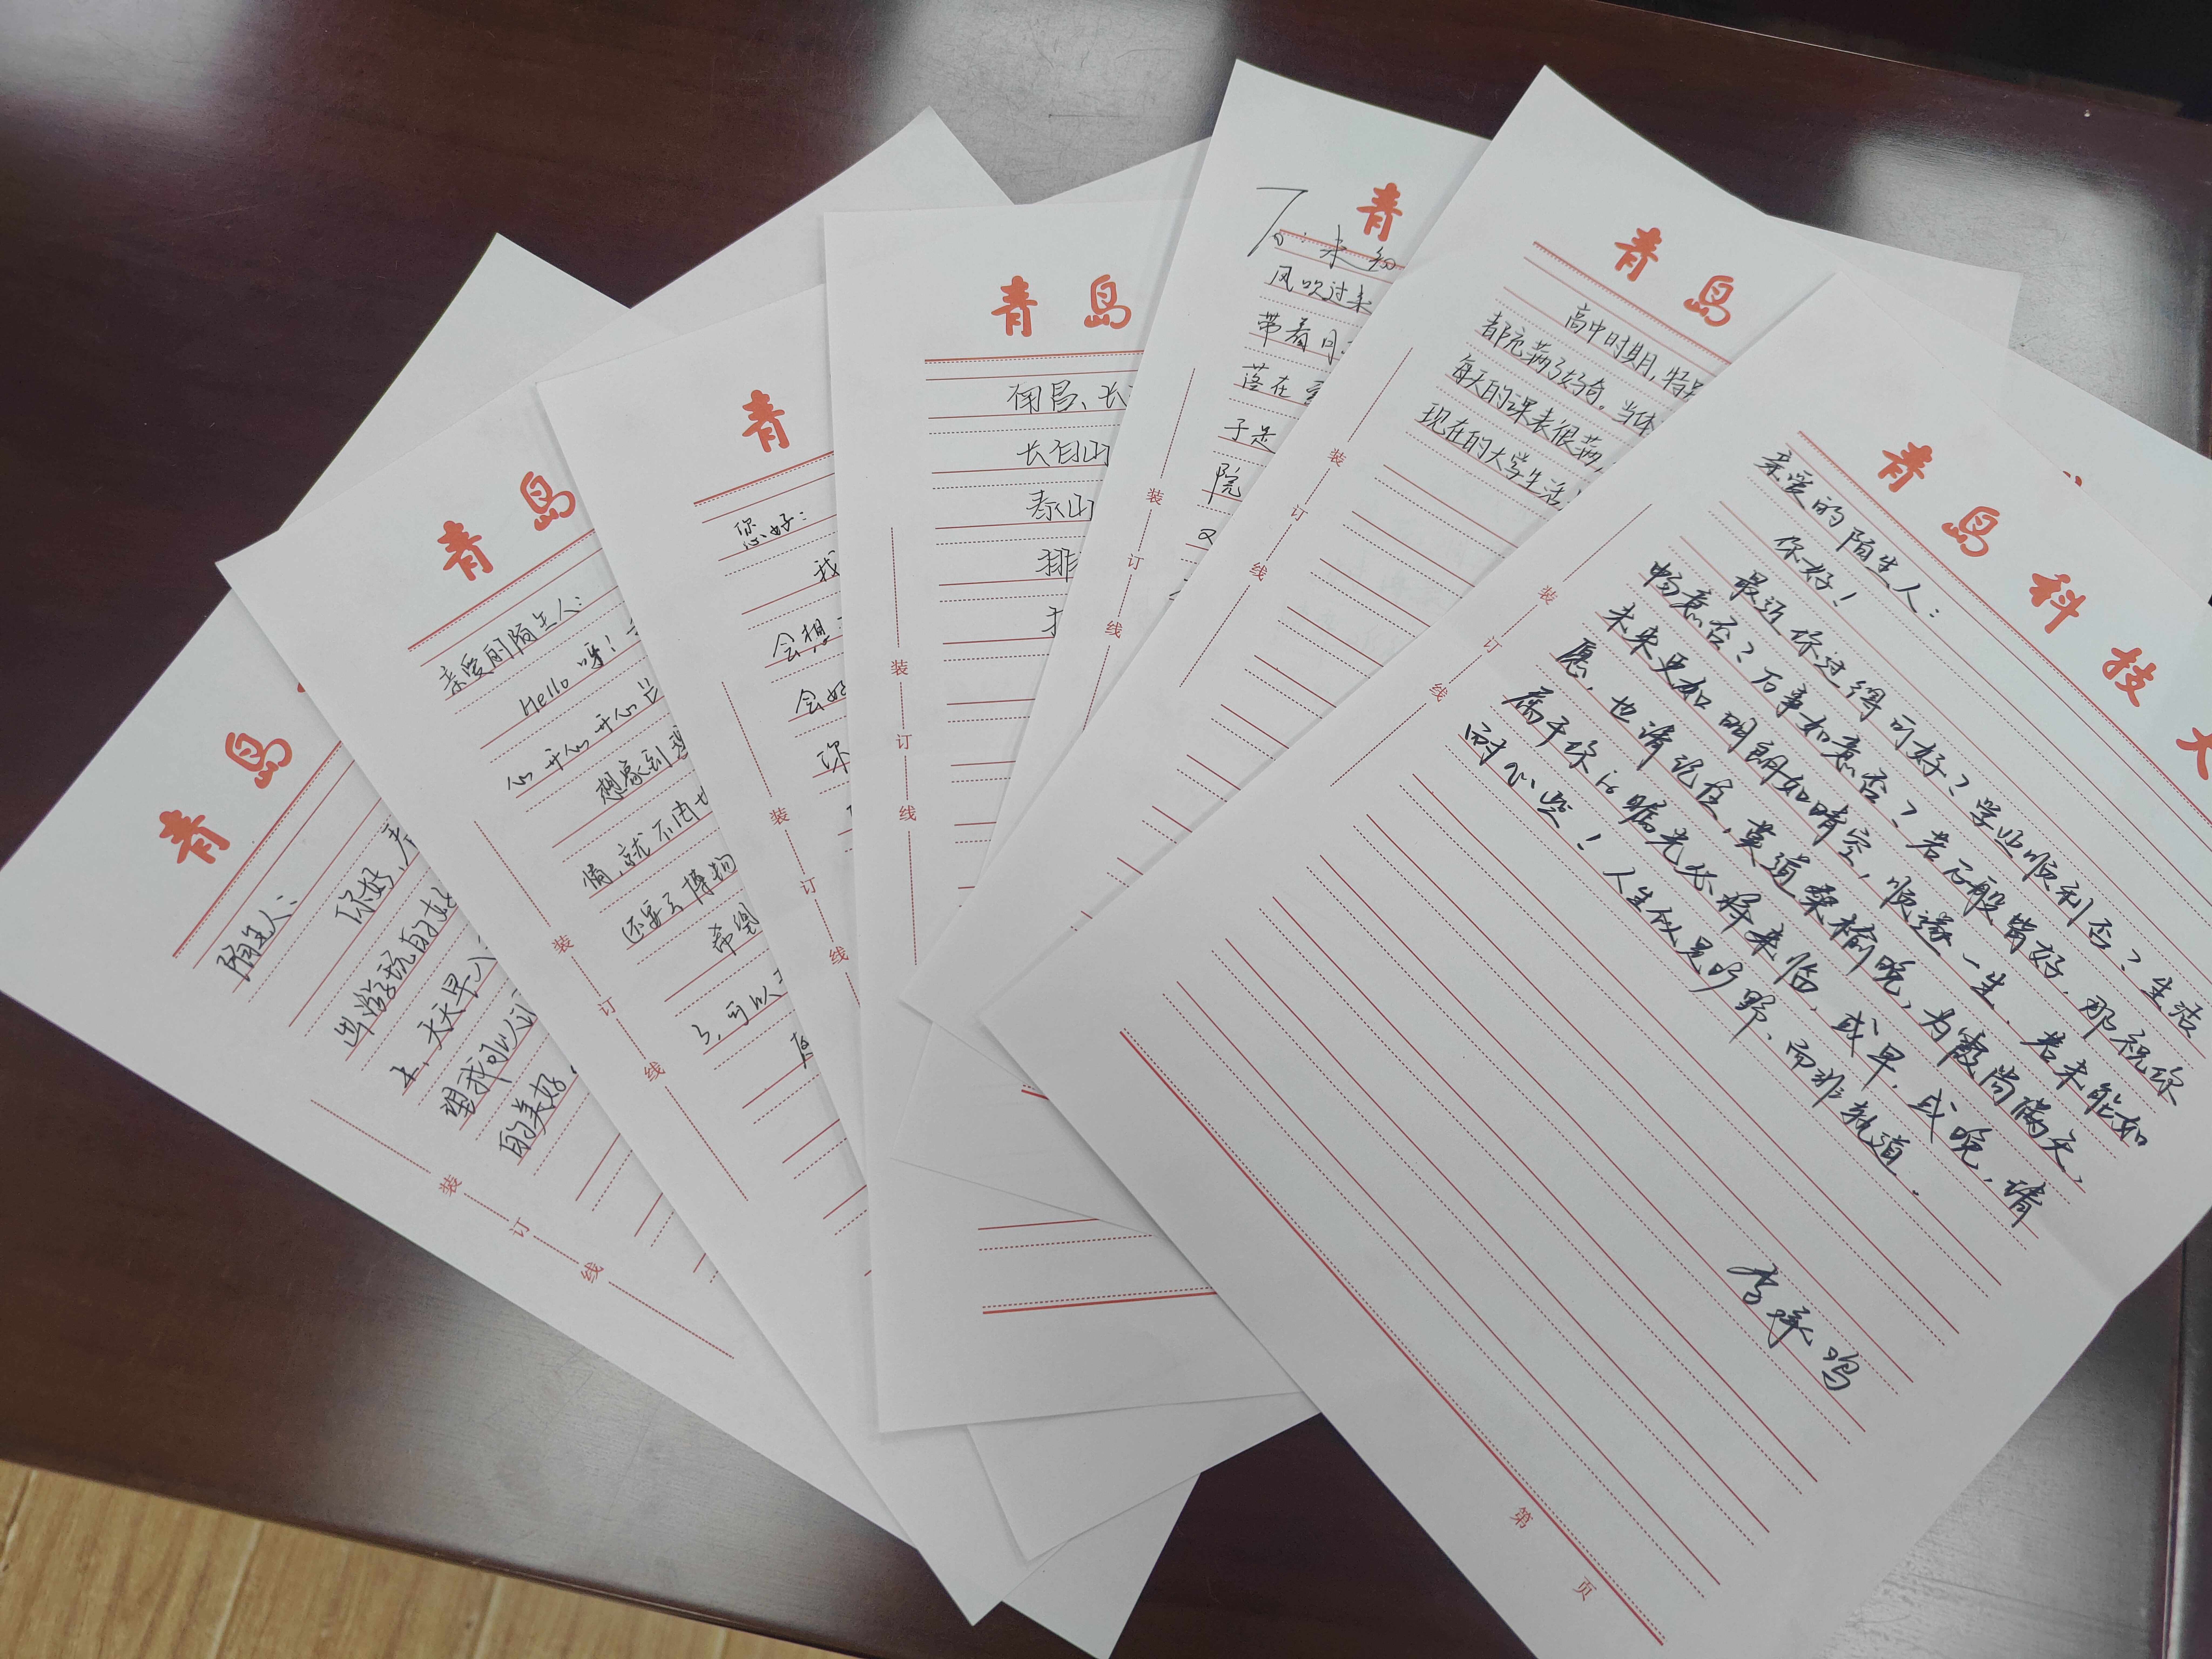 青岛
陌生人：
你好，
出游玩的
上，天天早八
望我可以
的美好
装订线
青岛
亲爱的陌生人：
Hello 呀！
心 开心 开心
想象到
情，就不由
还要去博物
希望
3，可以
装订线
青
您好：
我
会想
会好
你
装订线
青岛
南昌、长
长白山
泰山
排
装订线
青
To：未知
风吹过来
带着
落在
于是
院
又
装订线
青岛
高中时期，特
都充满了好奇。当体
每天的课表很满，
现在的大学生活
装订线
青岛科技大
亲爱的陌生人：
你好！
最近你过得可好？学业顺利否？生活
畅意否？万事如意否？若万般皆好，那祝你
未来更加明朗如晴空，顺遂一生。若未能如
愿，也请记住，莫道桑榆晚，为霞尚满天，
属于你的曙光必将来临，或早，或晚，请
耐心些！人生似是旷野，而非轨道。
李承鸣
装订线
第 页